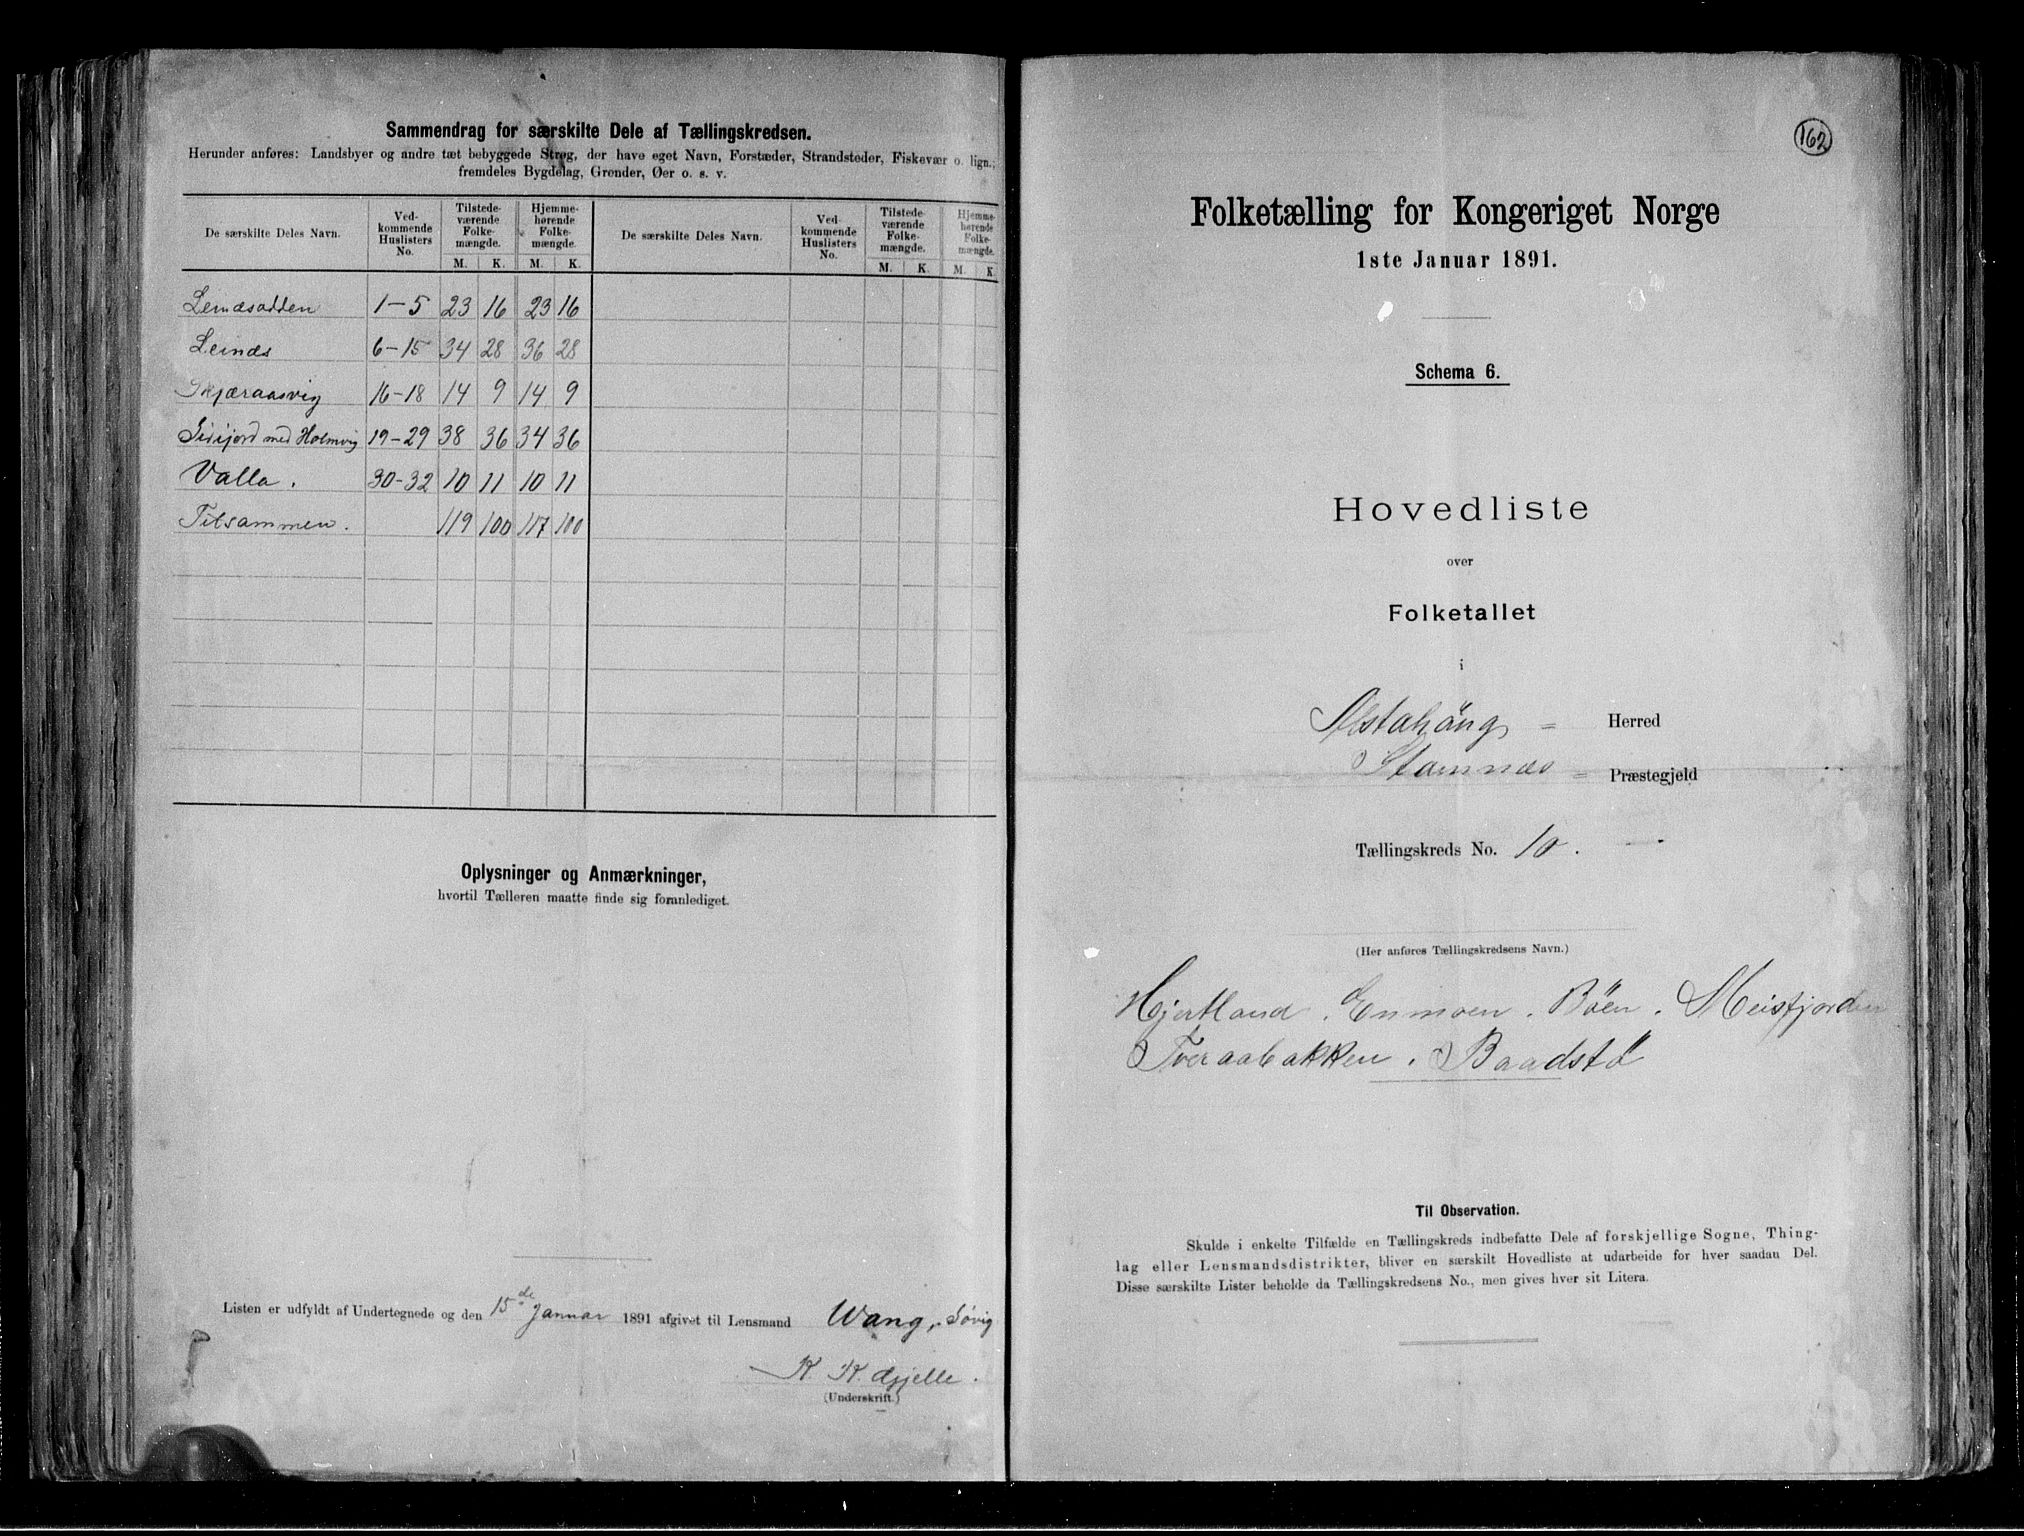 Sammendrag for særskilte Dele af Tællingskredsen.
Herunder anføres: Landsbyer og andre tæt bebyggede Strøg, der have eget Navn, Forstæder, Strandsteder, Fiskevær o. lign.;
fremdeles Bygdelag, Grender, Øer o. s. v.
De særskilte Deles Navn. Ved-kommende Huslisters No. Tilstede-værende Folke-mængde. Hjemme-hørende Folke-mængde. De særskilte Deles Navn. Ved-kommende Huslisters No. Tilstede-værende Folke-mængde. Hjemme-hørende Folke-mængde.
M. K. M. K. M. K. M. K.
Leinæsodden 1-5 23 16 23 16
Leinæs 6-15 34 28 36 28
Skjæraasvig 16-18 14 9 14 9
med Holmvig 19-29 38 36 34 36
Valla. 30-32 10 11 10 11
Tilsammen. 119 100 117 100
Oplysninger og Anmærkninger,
hvortil Tælleren maatte finde sig foranlediget.
Listen er udfyldt af Undertegnede og den 15de Januar 1891 afgivet til Lensmand Wang, Søvig
K. K.
(Underskrift.)
162
Folketælling for Kongeriget Norge
1ste Januar 1891.
Schema 6.
Hovedliste
over
Folketallet
i
Alstahaug = Herred
Stamnæs = Præstegjeld
Tællingskreds No. 10.
(Her anføres Tællingskredsens Navn.)
Hjertland. Enmoen. Böen. Meisfjorden
Tveraabakken. Baadstö
Til Observation.
Skulde i enkelte Tilfælde en Tællingskreds indbefatte Dele af forskjellige Sogne, Thing-
lag eller Lensmandsdistrikter, bliver en særskilt Hovedliste at udarbeide for hver saadan Del.
Disse særskilte Lister beholde da Tællingskredsens No., men gives hver sit Litera.